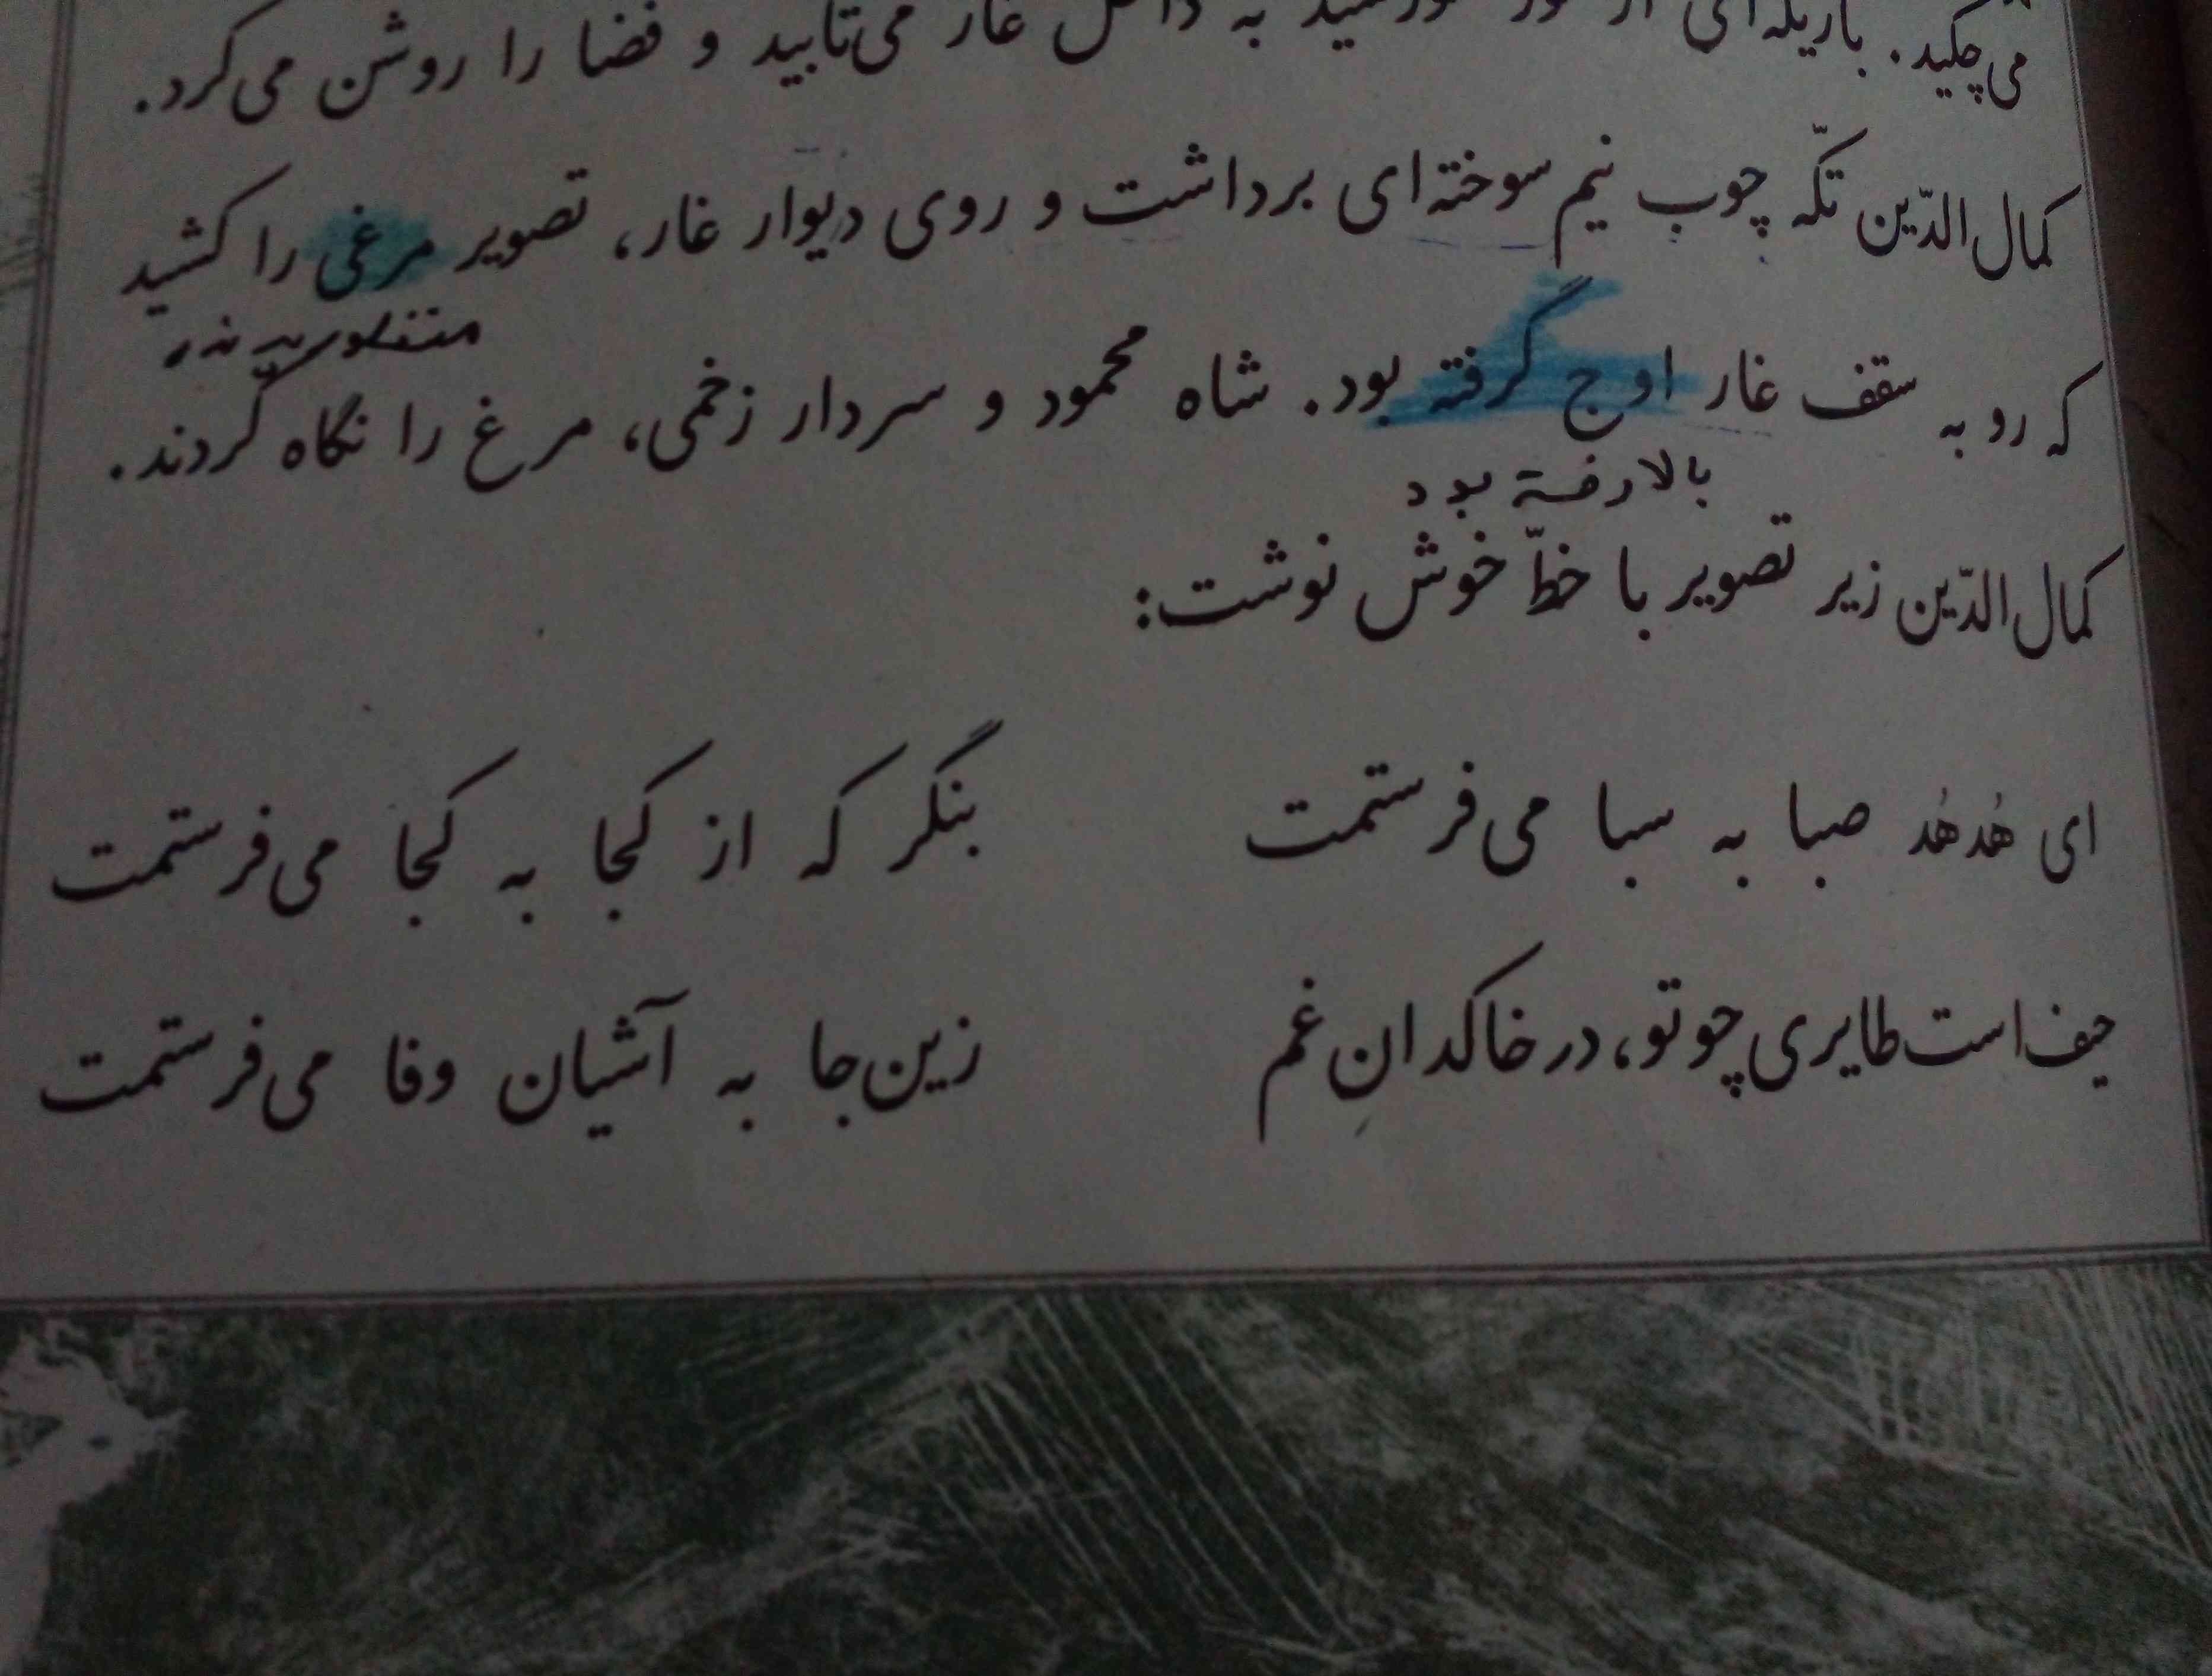 می‌چکید. باریکه‌ای از نور خورشید به داخل غار می‌تابید و فضا را روشن می‌کرد.
کمال‌الدّین تکّه چوب نیم‌سوخته‌ای برداشت و روی دیوار غار، تصویر مرغی را کشید
که رو به سقف غار اوج گرفته بود. شاه محمود و سردار زخمی، مرغ را نگاه کردند.
بالا رفته بود
کمال‌الدّین زیر تصویر با خطّ خوش نوشت:
ای هُدهُد صبا به سبا می‌فرستمت بنگر که از کجا به کجا می‌فرستمت
حیف است طایری چو تو، در خاکدانِ غم زین‌جا به آشیان وفا می‌فرستمت